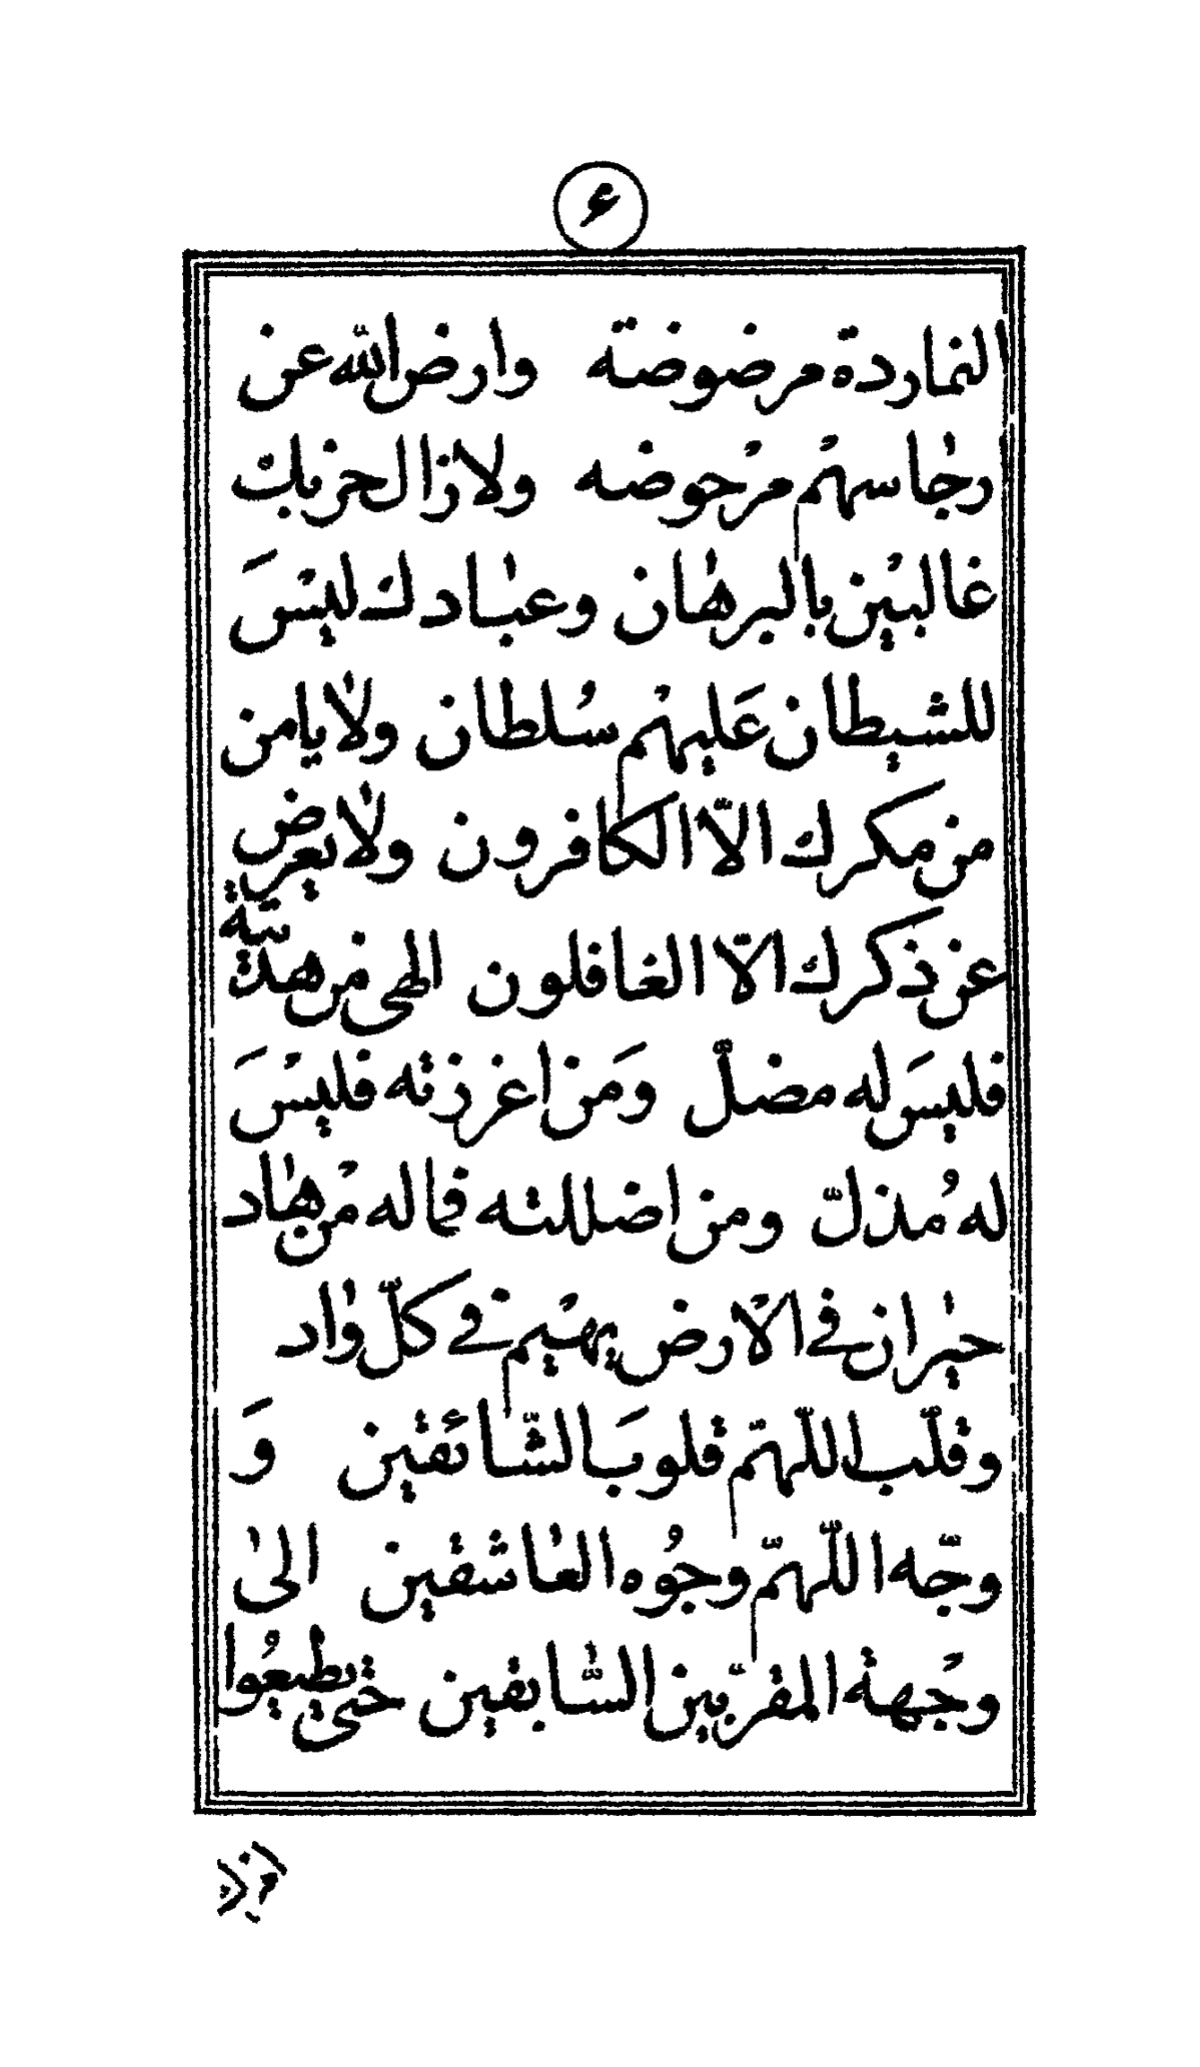 ۶
النماردة مرضوضة وارض الله عن
رجاسهم مرحوضه ولازال حزبك
غالبين بالبرهان وعبادك ليسَ
للشيطان عَليهم سُلطان ولا يامن
من مكرك الاّ الكافرون ولا يعرض
عن ذكرك الاّ الغافلون الهى من هديته
فليسَ له مضلّ ومَن اعززته فليسَ
له مُذلّ ومن اضللته فماله من هاد
حيران فى الارض يهيم فى كلّ واد
وقلّب اللهمّ قلوبَ الشّائقين وَ
وجّه اللّهمّ وجُوه العاشقين الى
وجهة المقرّبين السّابقين حتى يطيعُوا